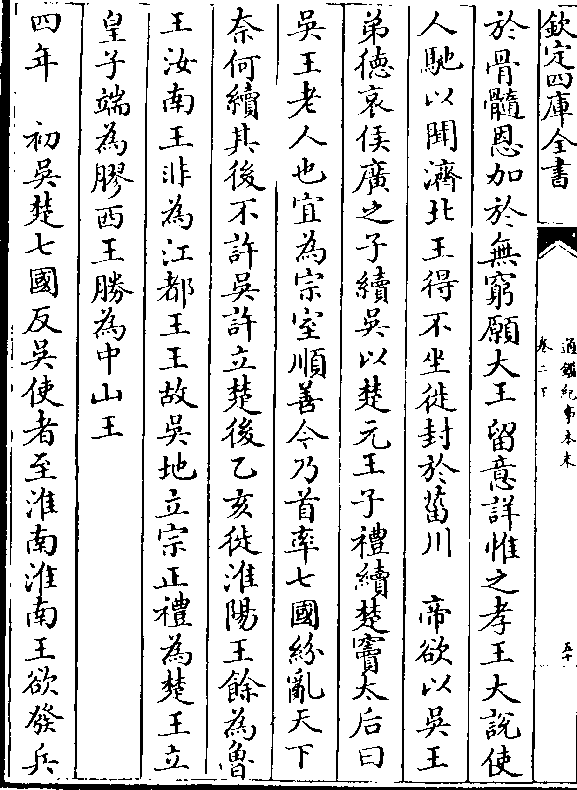 欽定四庫全書
通鑑紀事本末
卷二下
五十
於骨髓恩加於無窮願大王留意詳惟之孝王大說使
人馳以聞濟北王得不坐徙封於菑川　帝欲以吳王
弟德哀侯廣之子續吳以楚元王子禮續楚竇太后曰
吳王老人也宜為宗室順善今乃首率七國紛亂天下
奈何續其後不許吳許立楚後乙亥徙淮陽王餘為魯
王汝南王非為江都王王故吳地立宗正禮為楚王立
皇子端為膠西王勝為中山王
四年　初吳楚七國反吳使者至淮南淮南王欲發兵